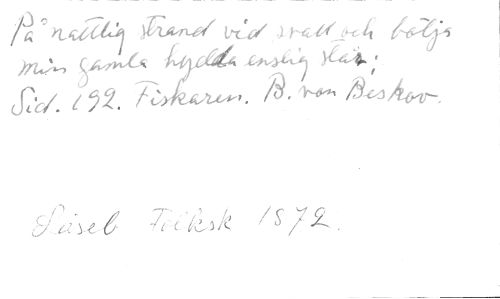 På nattlig strand vid svall och bölja
min gamla hydda enslig står.
Sid. 192. Fiskaren. B. von Beskov.
Läseb Folksk 1872.